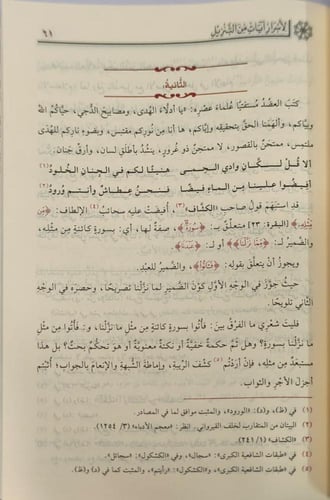 لأسرار آيات من التنزيل
٦١
الثانية:
كتب العضد مستفتيًا علماء عصره: «يا أدلاء الهدى، ومصابيح الدجى، حياكم الله
وبياكم، وألهمنا الحق بتحقيقه وإياكم، ها أنا من نوركم مقتبس، وبضوء ناركم للهدى
ملتمس، ممتحن بالقصور، لا ممتحن ذو غرور، ينشد بأطلق لسان، وأرق جنان:
ألا قل لسكان وادي الحمى هنيئًا لكم في الجنان الخلود(١)
أفيضوا علينا من الماء فيضًا فنحن عطاش وأنتم ورود(٢)
قد استبهم قول صاحب «الكشاف»(٣)، أفيضت عليه سجائب(٤) الإلطاف: ﴿من
مثله﴾ [البقرة: ٢٣] متعلق بـ: ﴿سورة﴾، صفة لها، أي: بسورة كائنة من مثله،
والضمير لـ: ﴿مما نزلنا﴾ أو لـ: ﴿عبدنا﴾.
ويجوز أن يتعلق بقوله: ﴿فأتوا﴾، والضمير للعبد.
حيث جوز في الوجه الأول كون الضمير لما نزلنا تصريحًا، وحصره في الوجه
الثاني تلويحًا.
فليت شعري ما الفرق بين: فأتوا بسورة كائنة من مثل ما نزلنا، و: فأتوا من مثل
ما نزلنا بسورة؟ وهل ثم حكمة خفية أو نكتة معنوية أو هو تحكم بحت؟ بل هذا
مستبعد من مثله، فإن أردتم(٥) كشف الريبة، وإماطة الشبهة والإنعام بالجواب؛ أثبتم
أجزل الأجر والثواب.
(١) في (ظ)، و(د): «الورود»، والمثبت موافق لما في المصادر.
(٢) البيتان من المتقارب لخلف القيرواني. انظر: «معجم الأدباء» (٣/ ١٢٥٤)
(٣) «الكشاف» (١/ ٢٤١)
(٤) في «طبقات الشافعية الكبرى»: «سجال»، وفي «الكشكول»: «سجائل».
(٥) في «طبقات الشافعية الكبرى»، و«الكشكول»: «رأيتم»، والمثبت كما في (د) و(ظ).